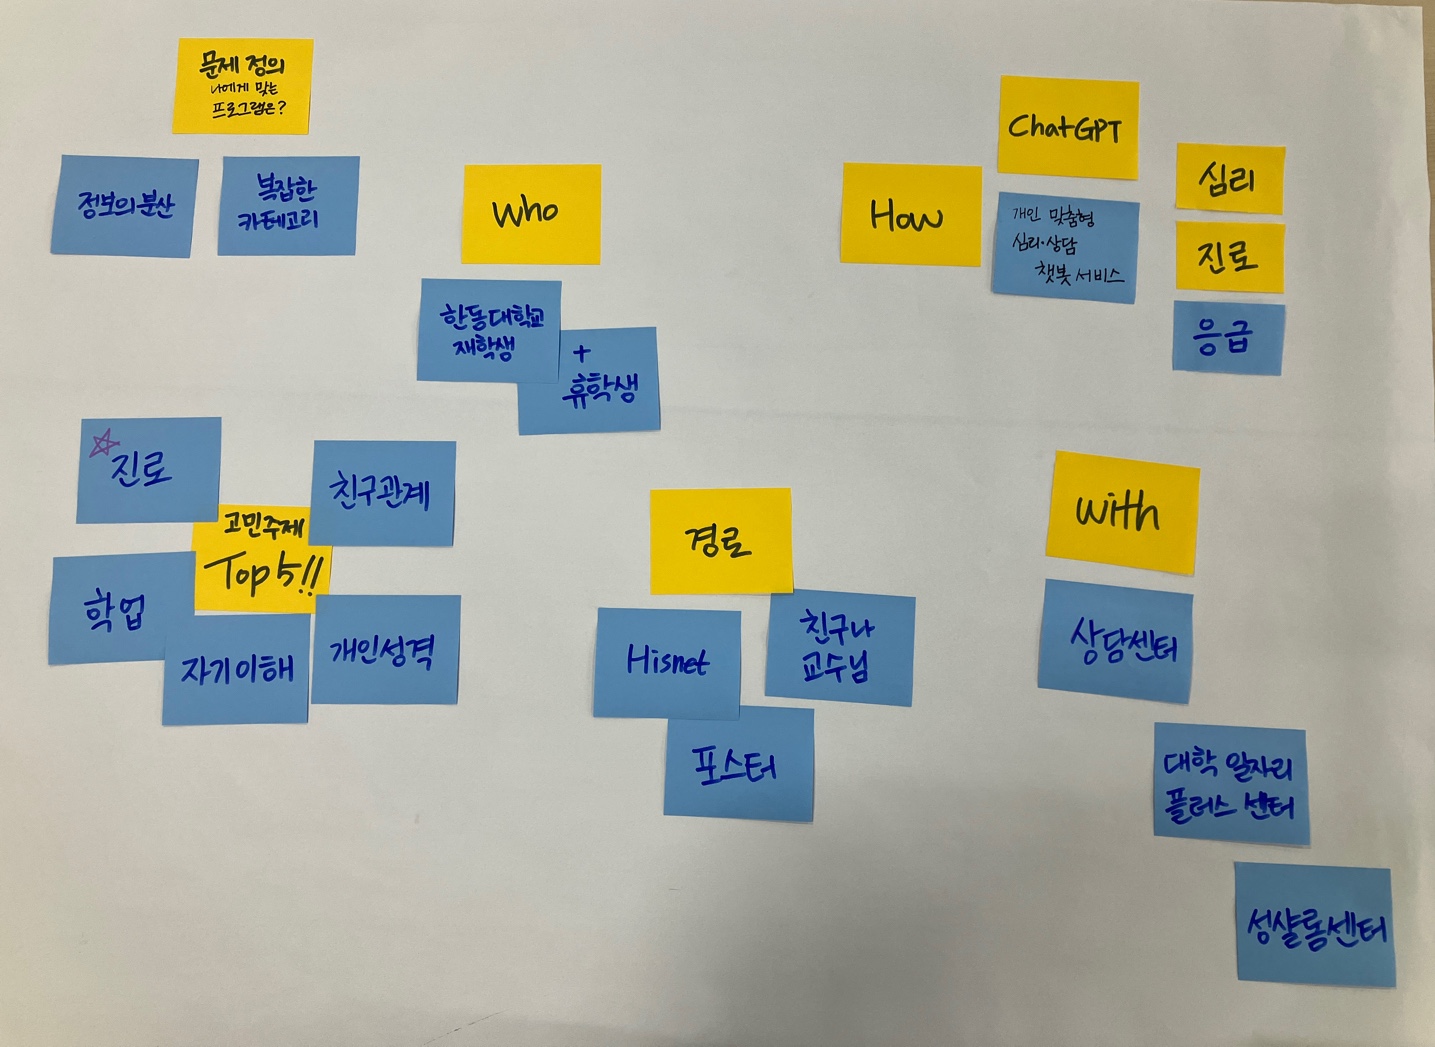 문제 정의
나에게 맞는
프로그램은?
정보의 분산
복잡한
카테고리
Who
한동대학교
재학생
+
휴학생
How
ChatGPT
개인 맞춤형
심리·상담
챗봇 서비스
심리
진로
응급
진로
친구관계
고민주제
Top 5!!
학업
자기이해
개인성격
경로
Hisnet
친구나
교수님
포스터
with
상담센터
대학 일자리
플러스 센터
성샬롬센터